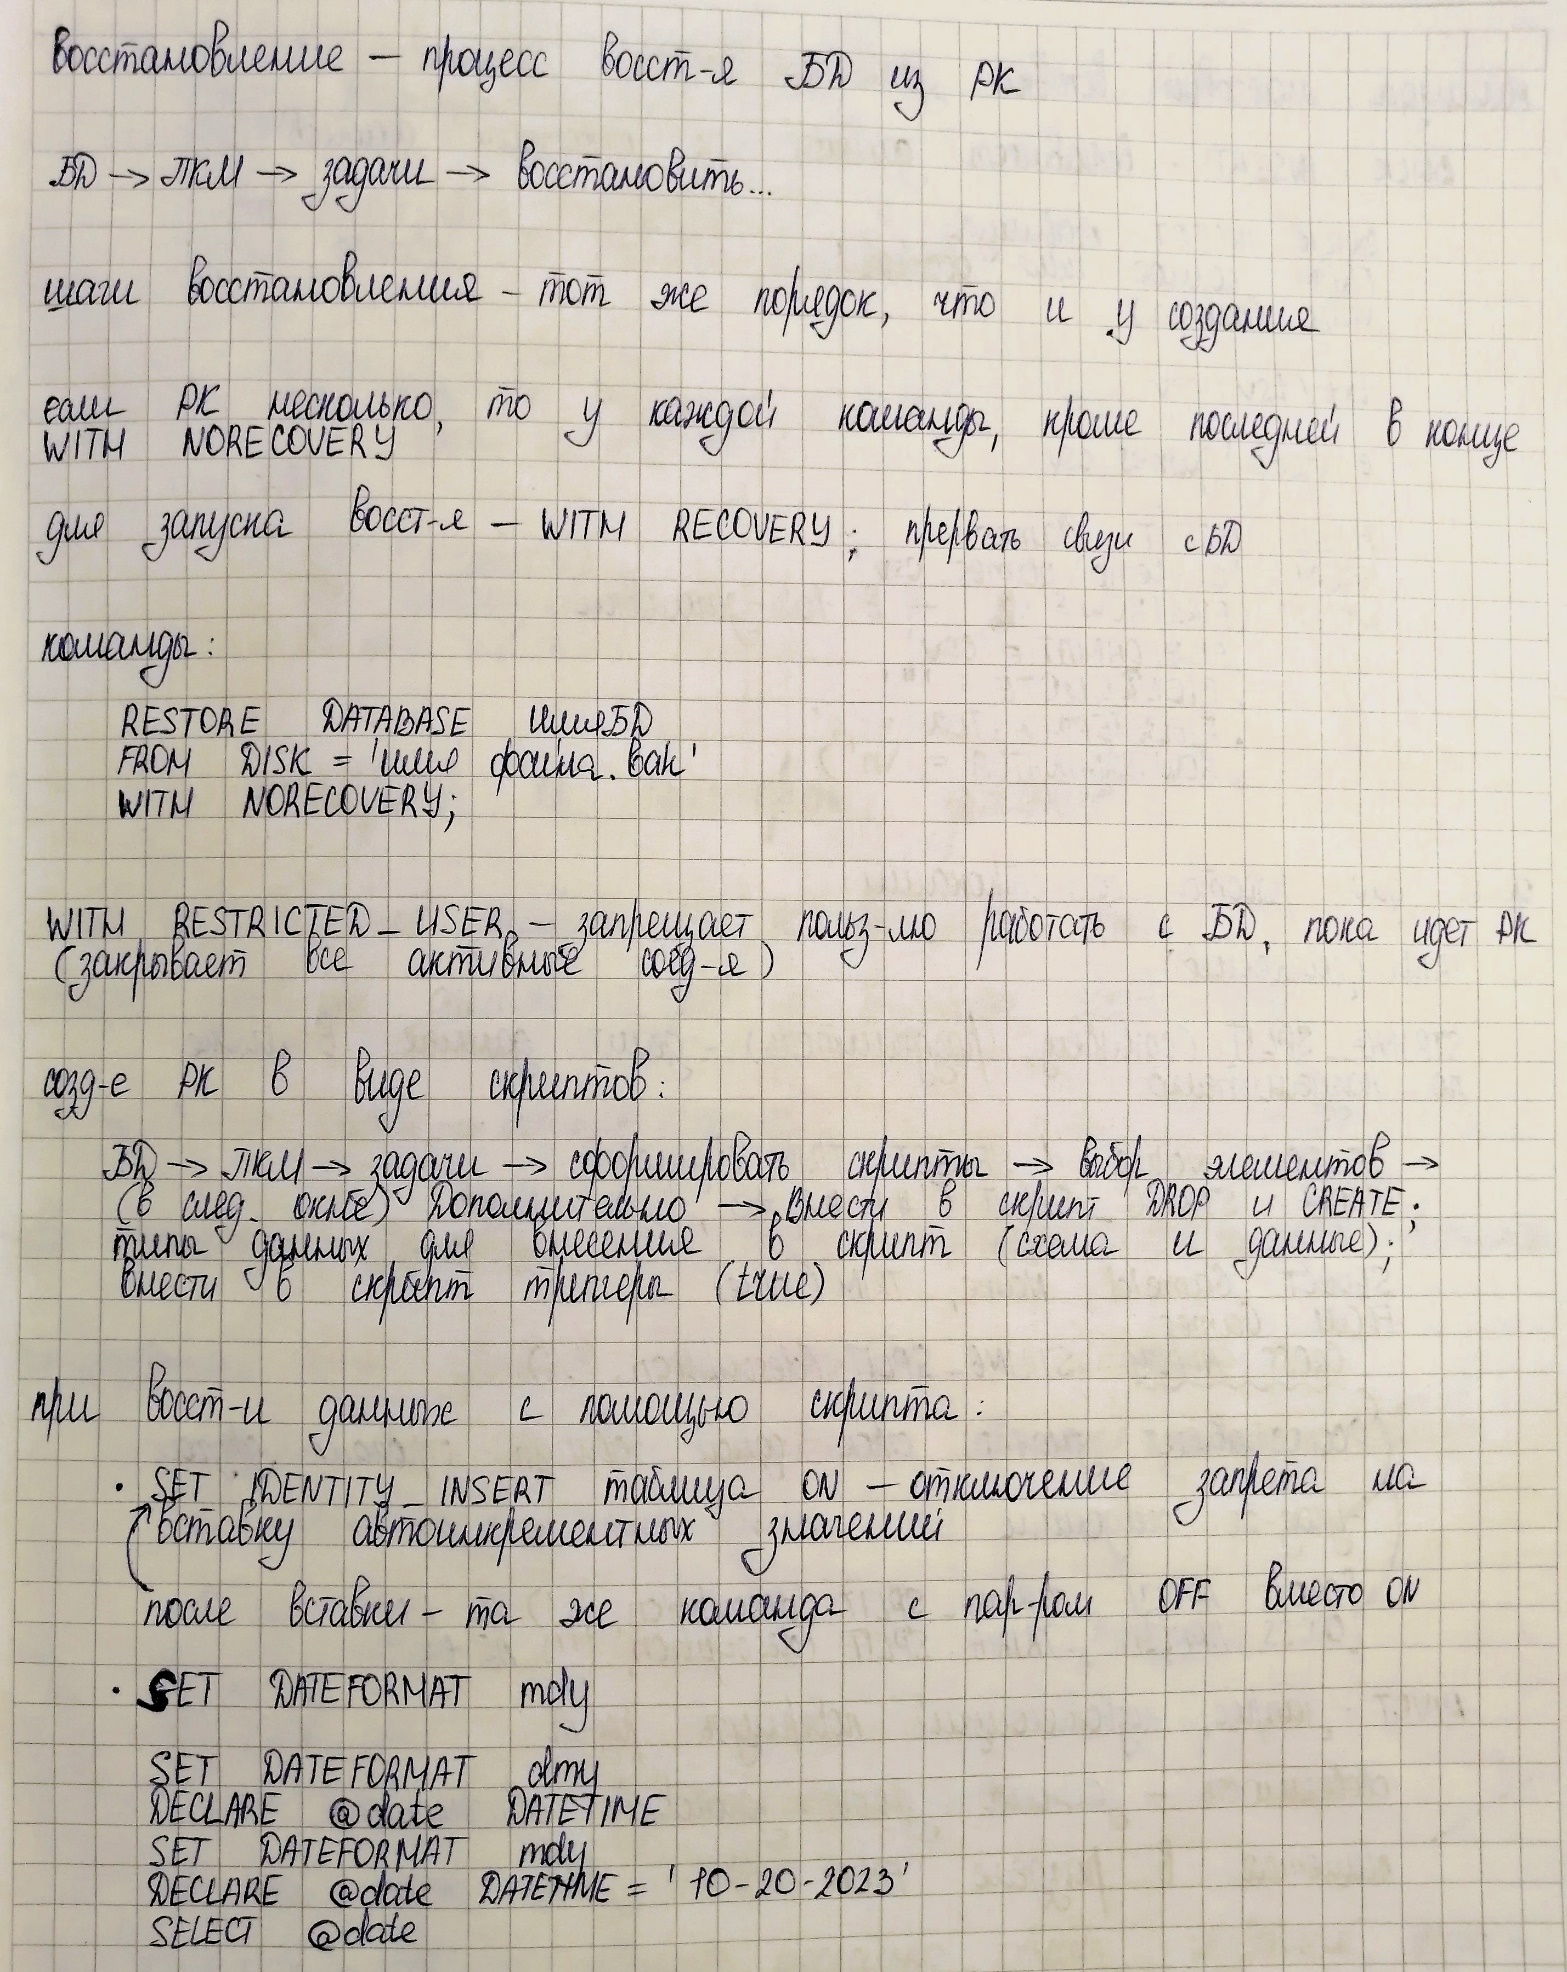 восстановление – процесс восст-я БД из РК
БД → ПКМ → задачи → восстановить...
шаги восстановления – тот же порядок, что и у создания
если РК несколько, то у каждой команды, кроме последней в конце
WITH NORECOVERY
для запуска восст-я – WITH RECOVERY; прервать связи с БД
команды:
RESTORE DATABASE имяБД
FROM DISK = 'имя файла.bak'
WITH NORECOVERY;
WITH RESTRICTED_USER – запрещает польз-лю работать с БД, пока идет РК
(закрывает все активные соед-я)
созд-е РК в виде скриптов:
БД → ПКМ → задачи → сформировать скрипты → выбор элементов →
(в след. окне) Дополнительно → Внести в скрипт DROP и CREATE;
типы данных для внесения в скрипт (схема и данные);
внести в скрипт триггеры (true)
при восст-и данных с помощью скрипта:
· SET IDENTITY_INSERT таблица ON – отключение запрета на
вставку автоинкрементных значений
после вставки – та же команда с пар-ром OFF вместо ON
· SET DATEFORMAT mdy
SET DATEFORMAT dmy
DECLARE @date DATETIME
SET DATEFORMAT mdy
DECLARE @date DATETIME = '10-20-2023'
SELECT @date